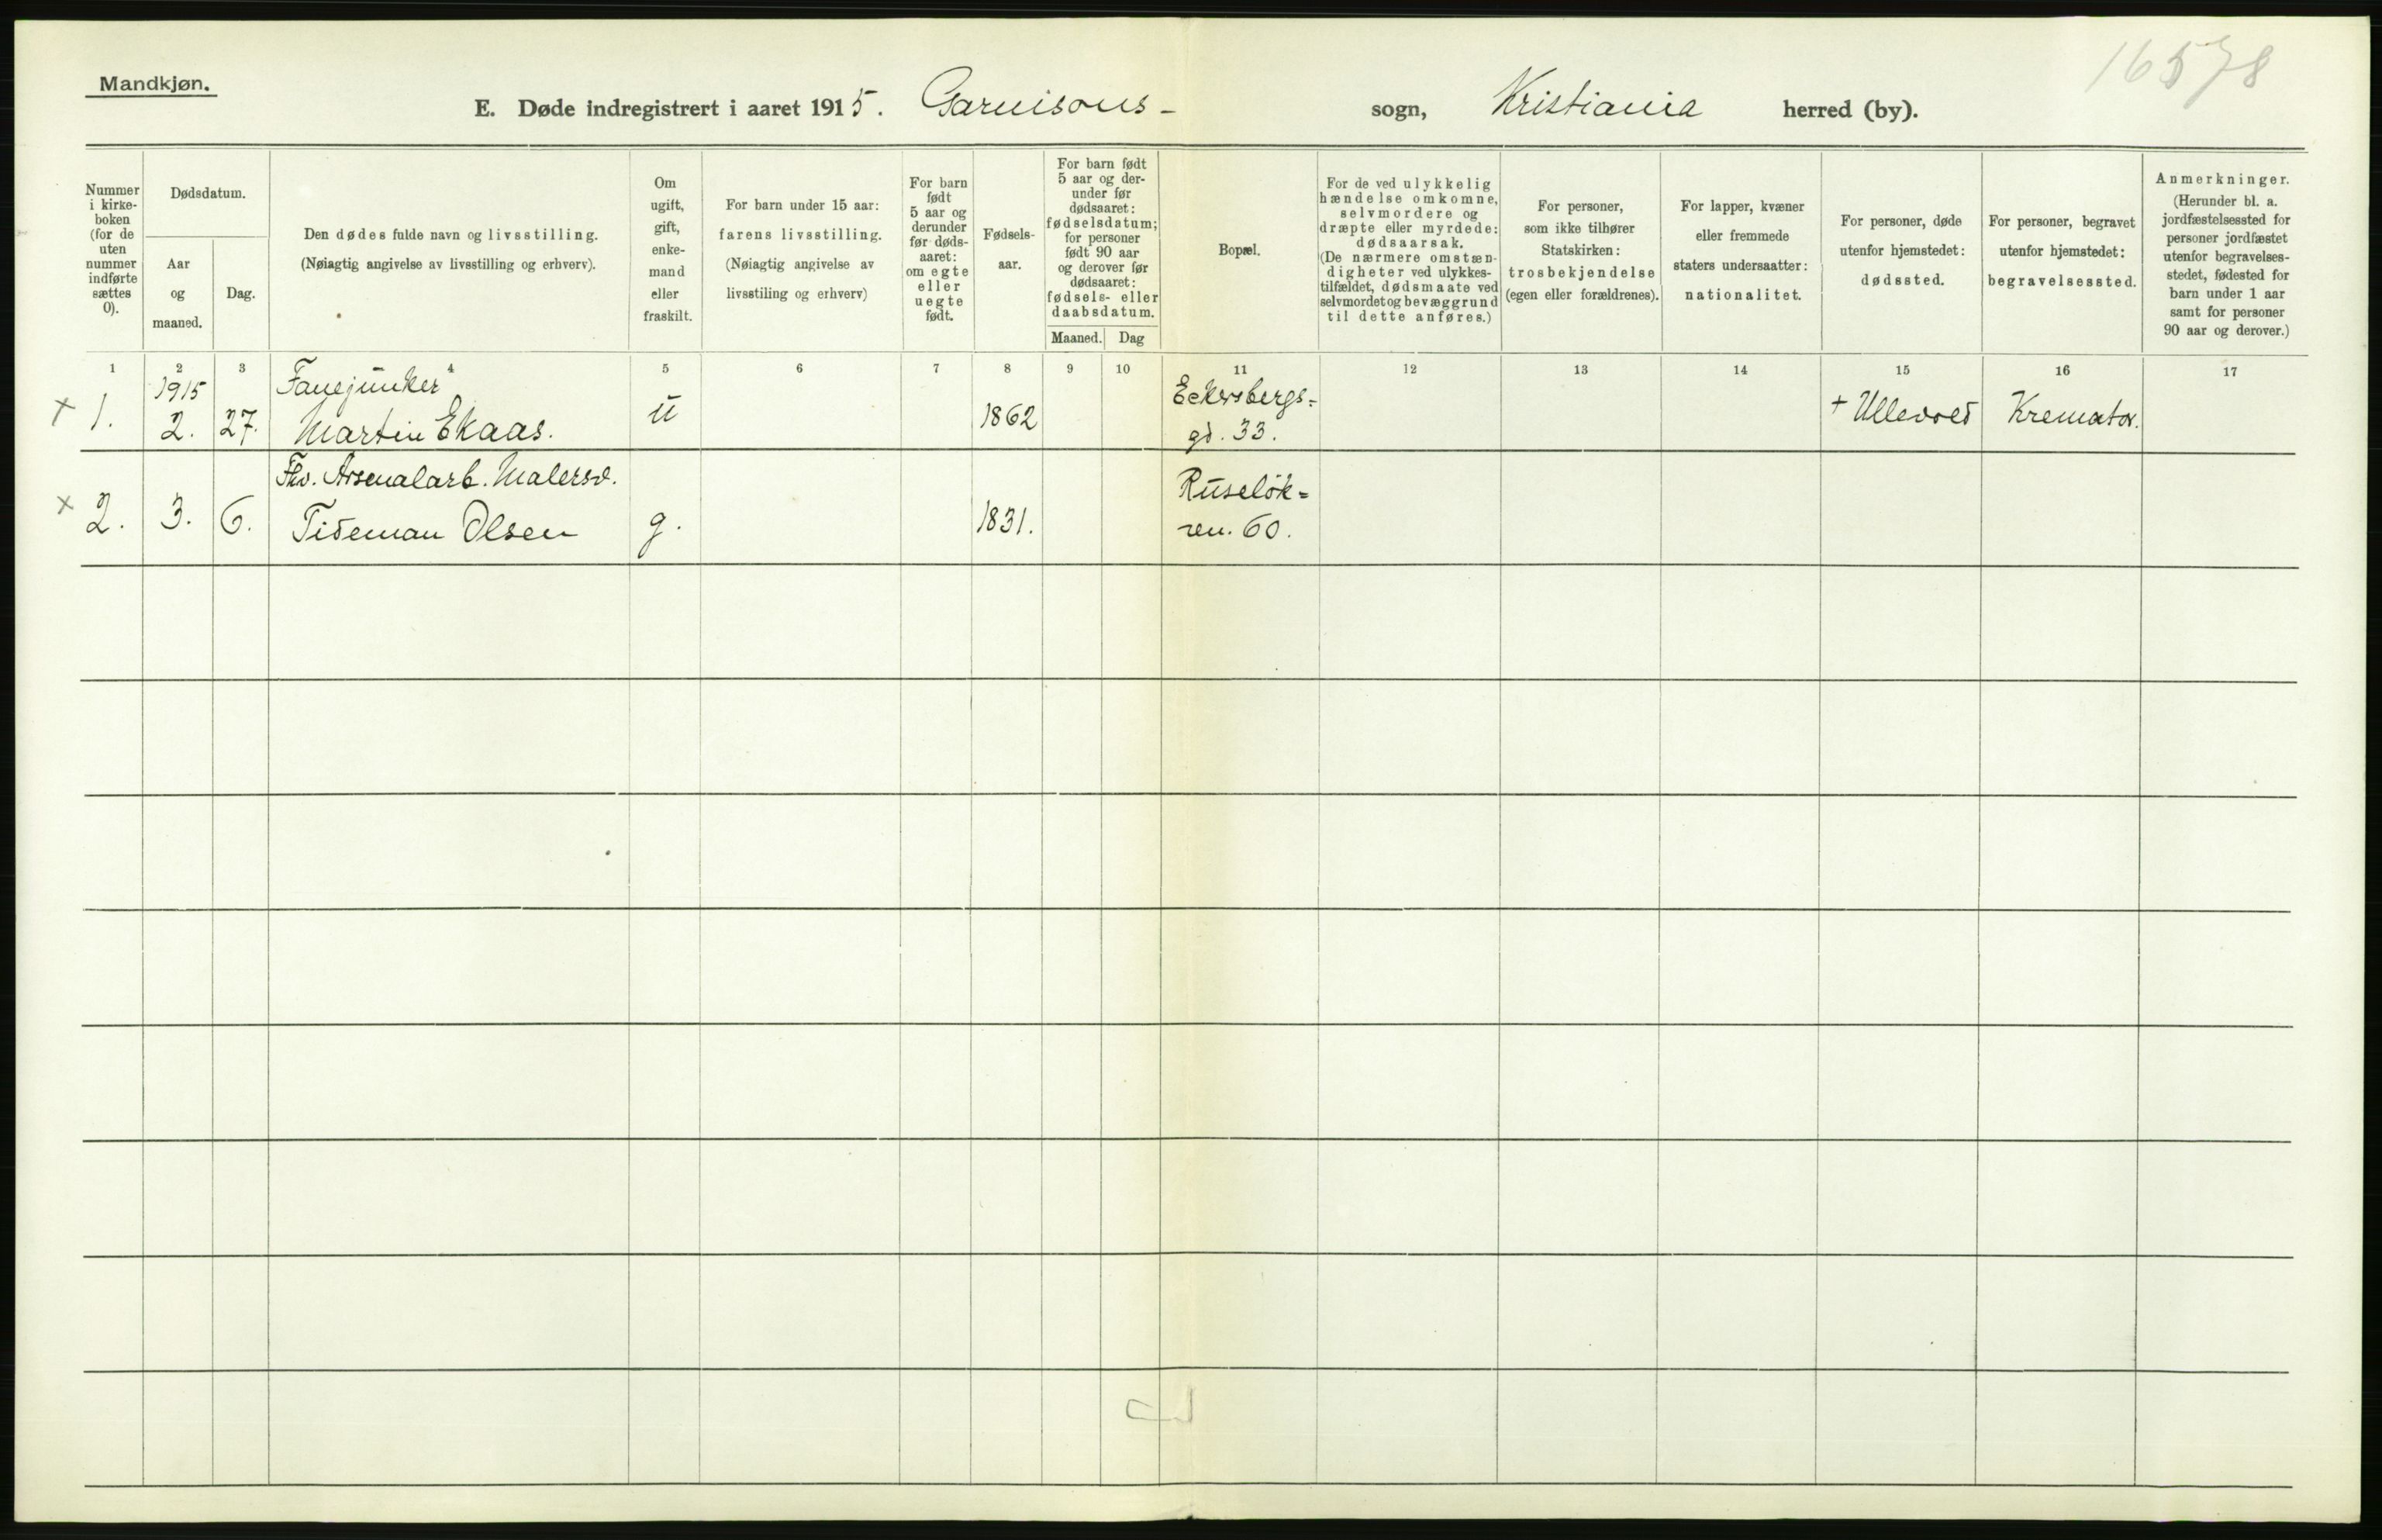 16578
Mandkjøn.
E. Døde indregistrert i aaret 1915. Garnisons- sogn, Kristiania herred (by).
Nummer
i kirke-
boken
(for de
uten
nummer
indførte
sættes
0).
Dødsdatum.
Aar
og
maaned.
Dag.
Den dødes fulde navn og livsstilling.
(Nøiagtig angivelse av livsstilling og erhverv).
Om
ugift,
gift,
enke-
mand
eller
fraskilt.
For barn under 15 aar:
farens livsstilling.
(Nøiagtig angivelse av
livsstiling og erhverv)
For barn
født
5 aar og
derunder
før døds-
aaret:
om egte
eller
uegte
født.
Fødsels-
aar.
For barn født
5 aar og der-
under før
dødsaaret:
fødselsdatum;
for personer
født 90 aar
og derover før
dødsaaret:
fødsels- eller
daabsdatum.
Maaned. Dag
Bopæl.
For de ved ulykkelig
hændelse omkomne,
selvmordere og
dræpte eller myrdede:
dødsaarsak.
(De nærmere omstæn-
digheter ved ulykkes-
tilfældet, dødsmaate ved
selvmordet og bevæggrund
til dette anføres.)
For personer,
som ikke tilhører
Statskirken:
trosbekjendelse
(egen eller forældrenes).
For lapper, kvæner
eller fremmede
staters undersaatter:
nationalitet.
For personer, døde
utenfor hjemstedet:
dødssted.
For personer, begravet
utenfor hjemstedet:
begravelsessted.
Anmerkninger.
(Herunder bl. a.
jordfæstelsessted for
personer jordfæstet
utenfor begravelses-
stedet, fødested for
barn under 1 aar
samt for personer
90 aar og derover.)
1 2 3 4 5 6 7 8 9 10 11 12 13 14 15 16 17
1915 Fanejunker Eckersbergs=
+ 1. 2. 27. Martin Ekaas. u 1862 gd. 33. + Ullevoll Kremator.
Fhv. Arsenalarb. Malersv. Ruseløk=
x 2. 3. 6. Tideman Olsen g. 1831. vn. 60.